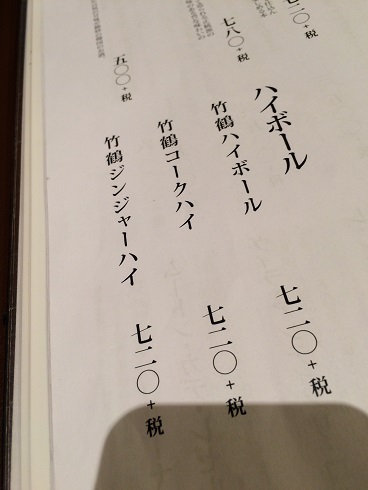 二〇+税
七八〇+税
五〇〇+税
ハイボール
竹鶴ハイボール 七二〇+税
竹鶴コークハイ 七二〇+税
竹鶴ジンジャーハイ 七二〇+税